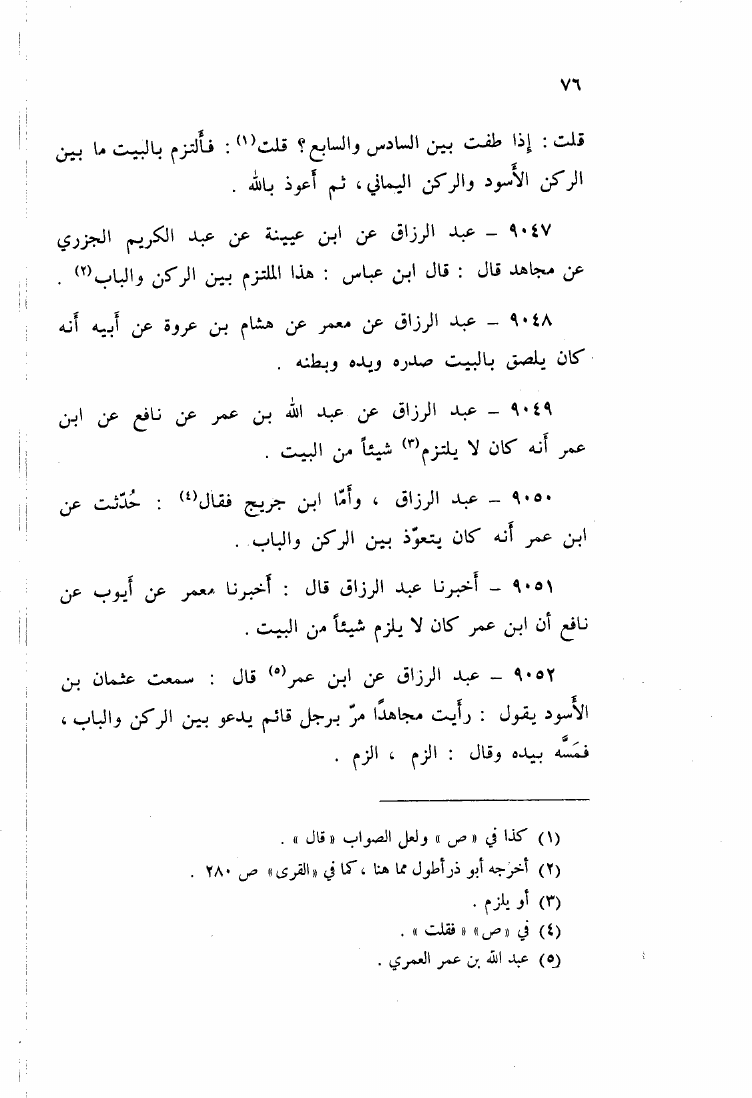 ٧٦
قلت : إذا طفت بين السادس والسابع؟ قلت(١) : فألتزم بالبيت ما بين
الركن الأسود والركن اليماني، ثم أعوذ بالله .
٩٠٤٧ – عبد الرزاق عن ابن عيينة عن عبد الكريم الجزري
عن مجاهد قال : قال ابن عباس : هذا الملتزم بين الركن والباب(٢) .
٩٠٤٨ – عبد الرزاق عن معمر عن هشام بن عروة عن أبيه أنه
كان يلصق بالبيت صدره ويده وبطنه .
٩٠٤٩ – عبد الرزاق عن عبد الله بن عمر عن نافع عن ابن
عمر أنه كان لا يلتزم(٣) شيئاً من البيت .
٩٠٥٠ – عبد الرزاق ، وأمّا ابن جريج فقال(٤) : حُدّثت عن
ابن عمر أنه كان يتعوّذ بين الركن والباب .
٩٠٥١ – أخبرنا عبد الرزاق قال : أخبرنا معمر عن أيوب عن
نافع أن ابن عمر كان لا يلزم شيئاً من البيت .
٩٠٥٢ – عبد الرزاق عن ابن عمر(٥) قال : سمعت عثمان بن
الأسود يقول : رأيت مجاهدًا مرّ برجل قائم يدعو بين الركن والباب ،
فمَسَّه بيده وقال : الزم ، الزم .
(١) كذا في «ص» ولعل الصواب «قال» .
(٢) أخرجه أبو ذر أطول مما هنا ، كما في «القرى» ص ٢٨٠ .
(٣) أو يلزم .
(٤) في «ص» «فقلت» .
(٥) عبد الله بن عمر العمري .